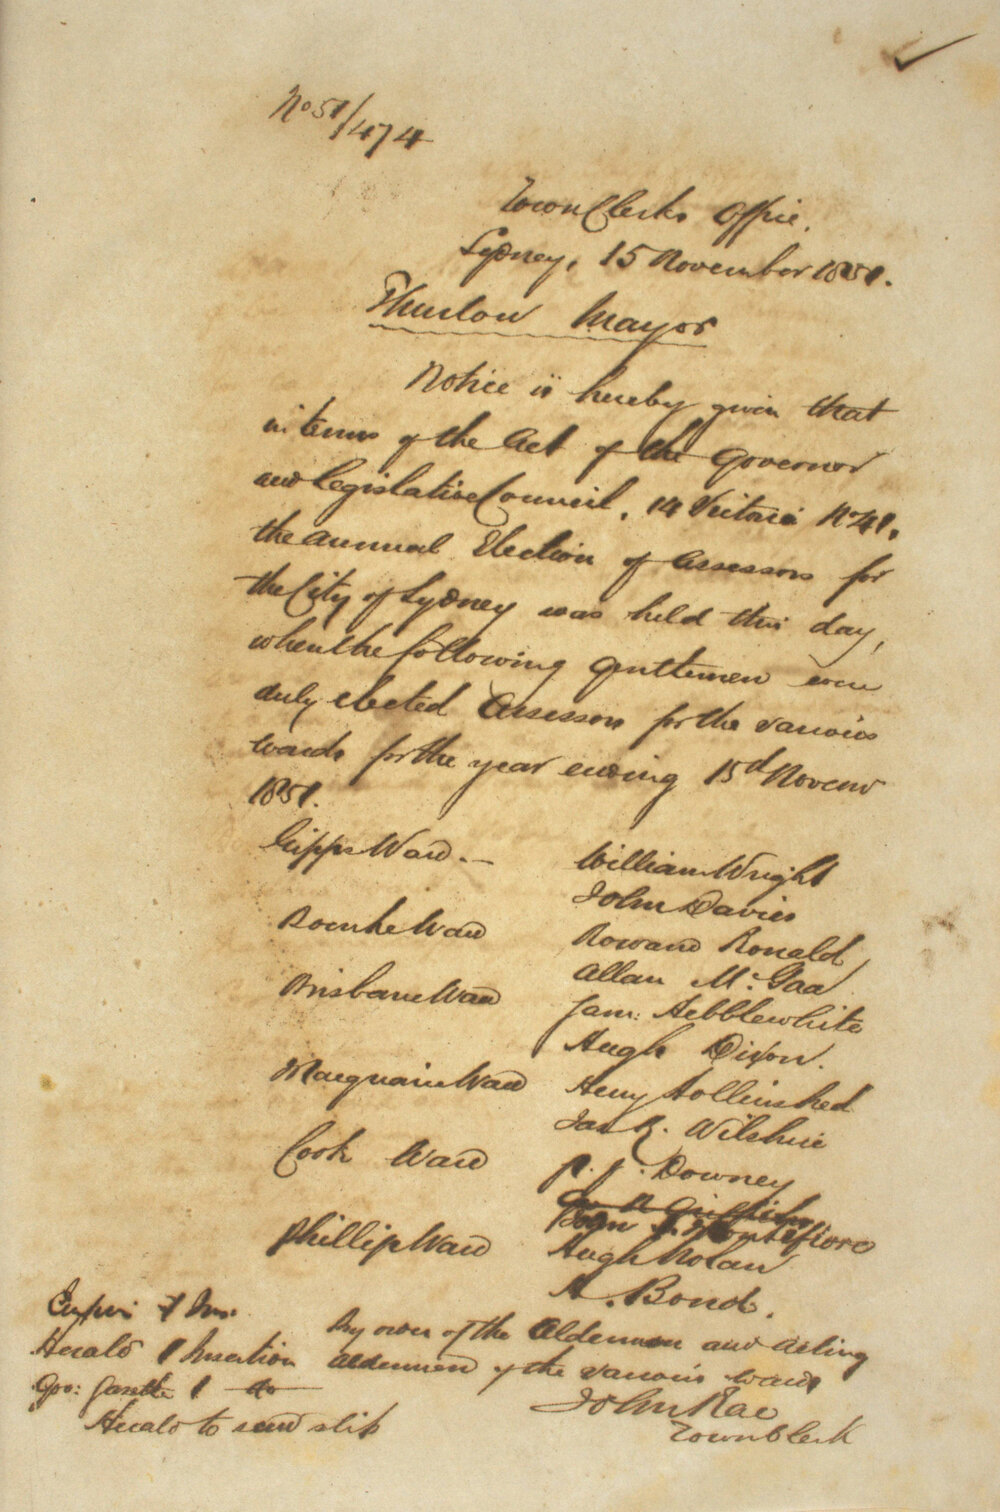 No 51/474
Town Clerks Office.
Sydney, 15 November 1851.
Thurlow Mayor
Notice is hereby given that
in terms of the Act of the Governor
and Legislative Council, 14 Victoria No 41,
the annual Election of Assessors for
the City of Sydney was held this day,
when the following gentlemen were
duly elected Assessors for the various
Wards for the year ending 15d Novem
1851.
Gipps Ward.- William Wright
John Davies
Bourke Ward Rowand Ronald
Allan McGaa
Brisbane Ward Jam: Hebblewhite
Hugh Dixon.
Macquarie Ward Henry Hollinshed
Jas R. Wilshire
Cook Ward P. J. Downey
Griffiths
Montefiore
Phillip Ward Hugh Nolan
A. Bond.
By order of the Aldermen and Acting
Aldermen of the various wards
John Rae
Town Clerk
Empire 1 Ins.
Herald 1 Insertion
Gov: Gazette 1 do
Herald to send slip